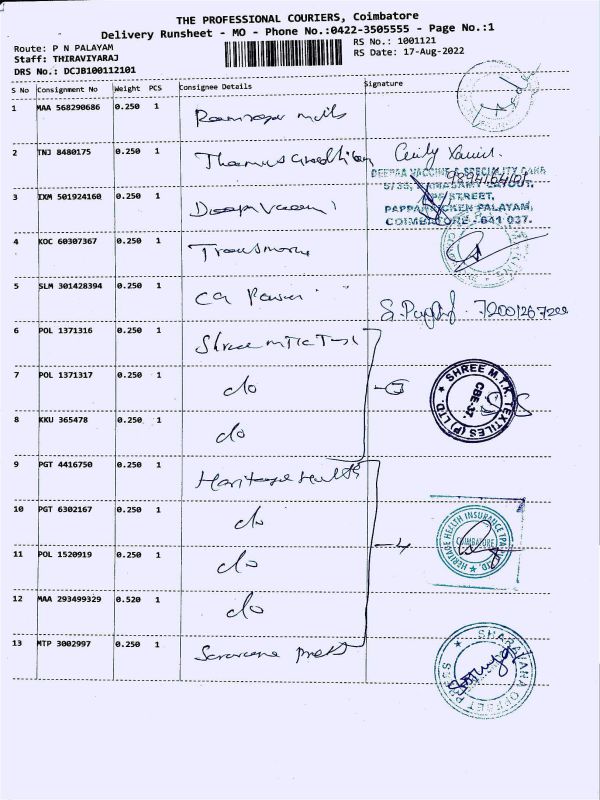 THE PROFESSIONAL COURIERS, Coimbatore
Delivery Runsheet - MO - Phone No.:0422-3505555 - Page No.:1
Route: P N PALAYAM
Staff: THIRAVIYARAJ
DRS No.: DCJB100112101
RS No.: 1001121
RS Date: 17-Aug-2022
S No Consignment No Weight PCS Consignee Details Signature
1 MAA 568290686 0.250 1
2 TNJ 8480175 0.250 1 Thomus
DEEPAA VACCINE & SPECIALITY CARE
STREET,
PAPPANAICKEN PALAYAM,
COIMBATORE - 641 037.
3 IXM 501924160 0.250 1
4 KOC 60307367 0.250 1
5 SLM 301428394 0.250 1 72001267200
6 POL 1371316 0.250 1 Shree MTK
7 POL 1371317 0.250 1 do
8 KKU 365478 0.250 1 do
SHREE M.T.K. TEXTILES (P) LTD.
CBE-37.
9 PGT 4416750 0.250 1 Heritage Health
10 PGT 6302167 0.250 1 do
11 POL 1520919 0.250 1 do
HERITAGE HEALTH INSURANCE TPA PVT LTD.
COIMBATORE
4
12 MAA 293499329 0.520 1 do
13 MTP 3002997 0.250 1 Saravana press
SHARAVANA OFFSET PRESS